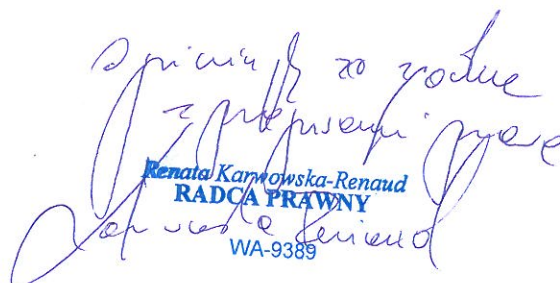 Opiniuję za zgodne
z przepisami prawa
Renata Karwowska-Renaud
RADCA PRAWNY
Karwowska Renaud
WA-9389